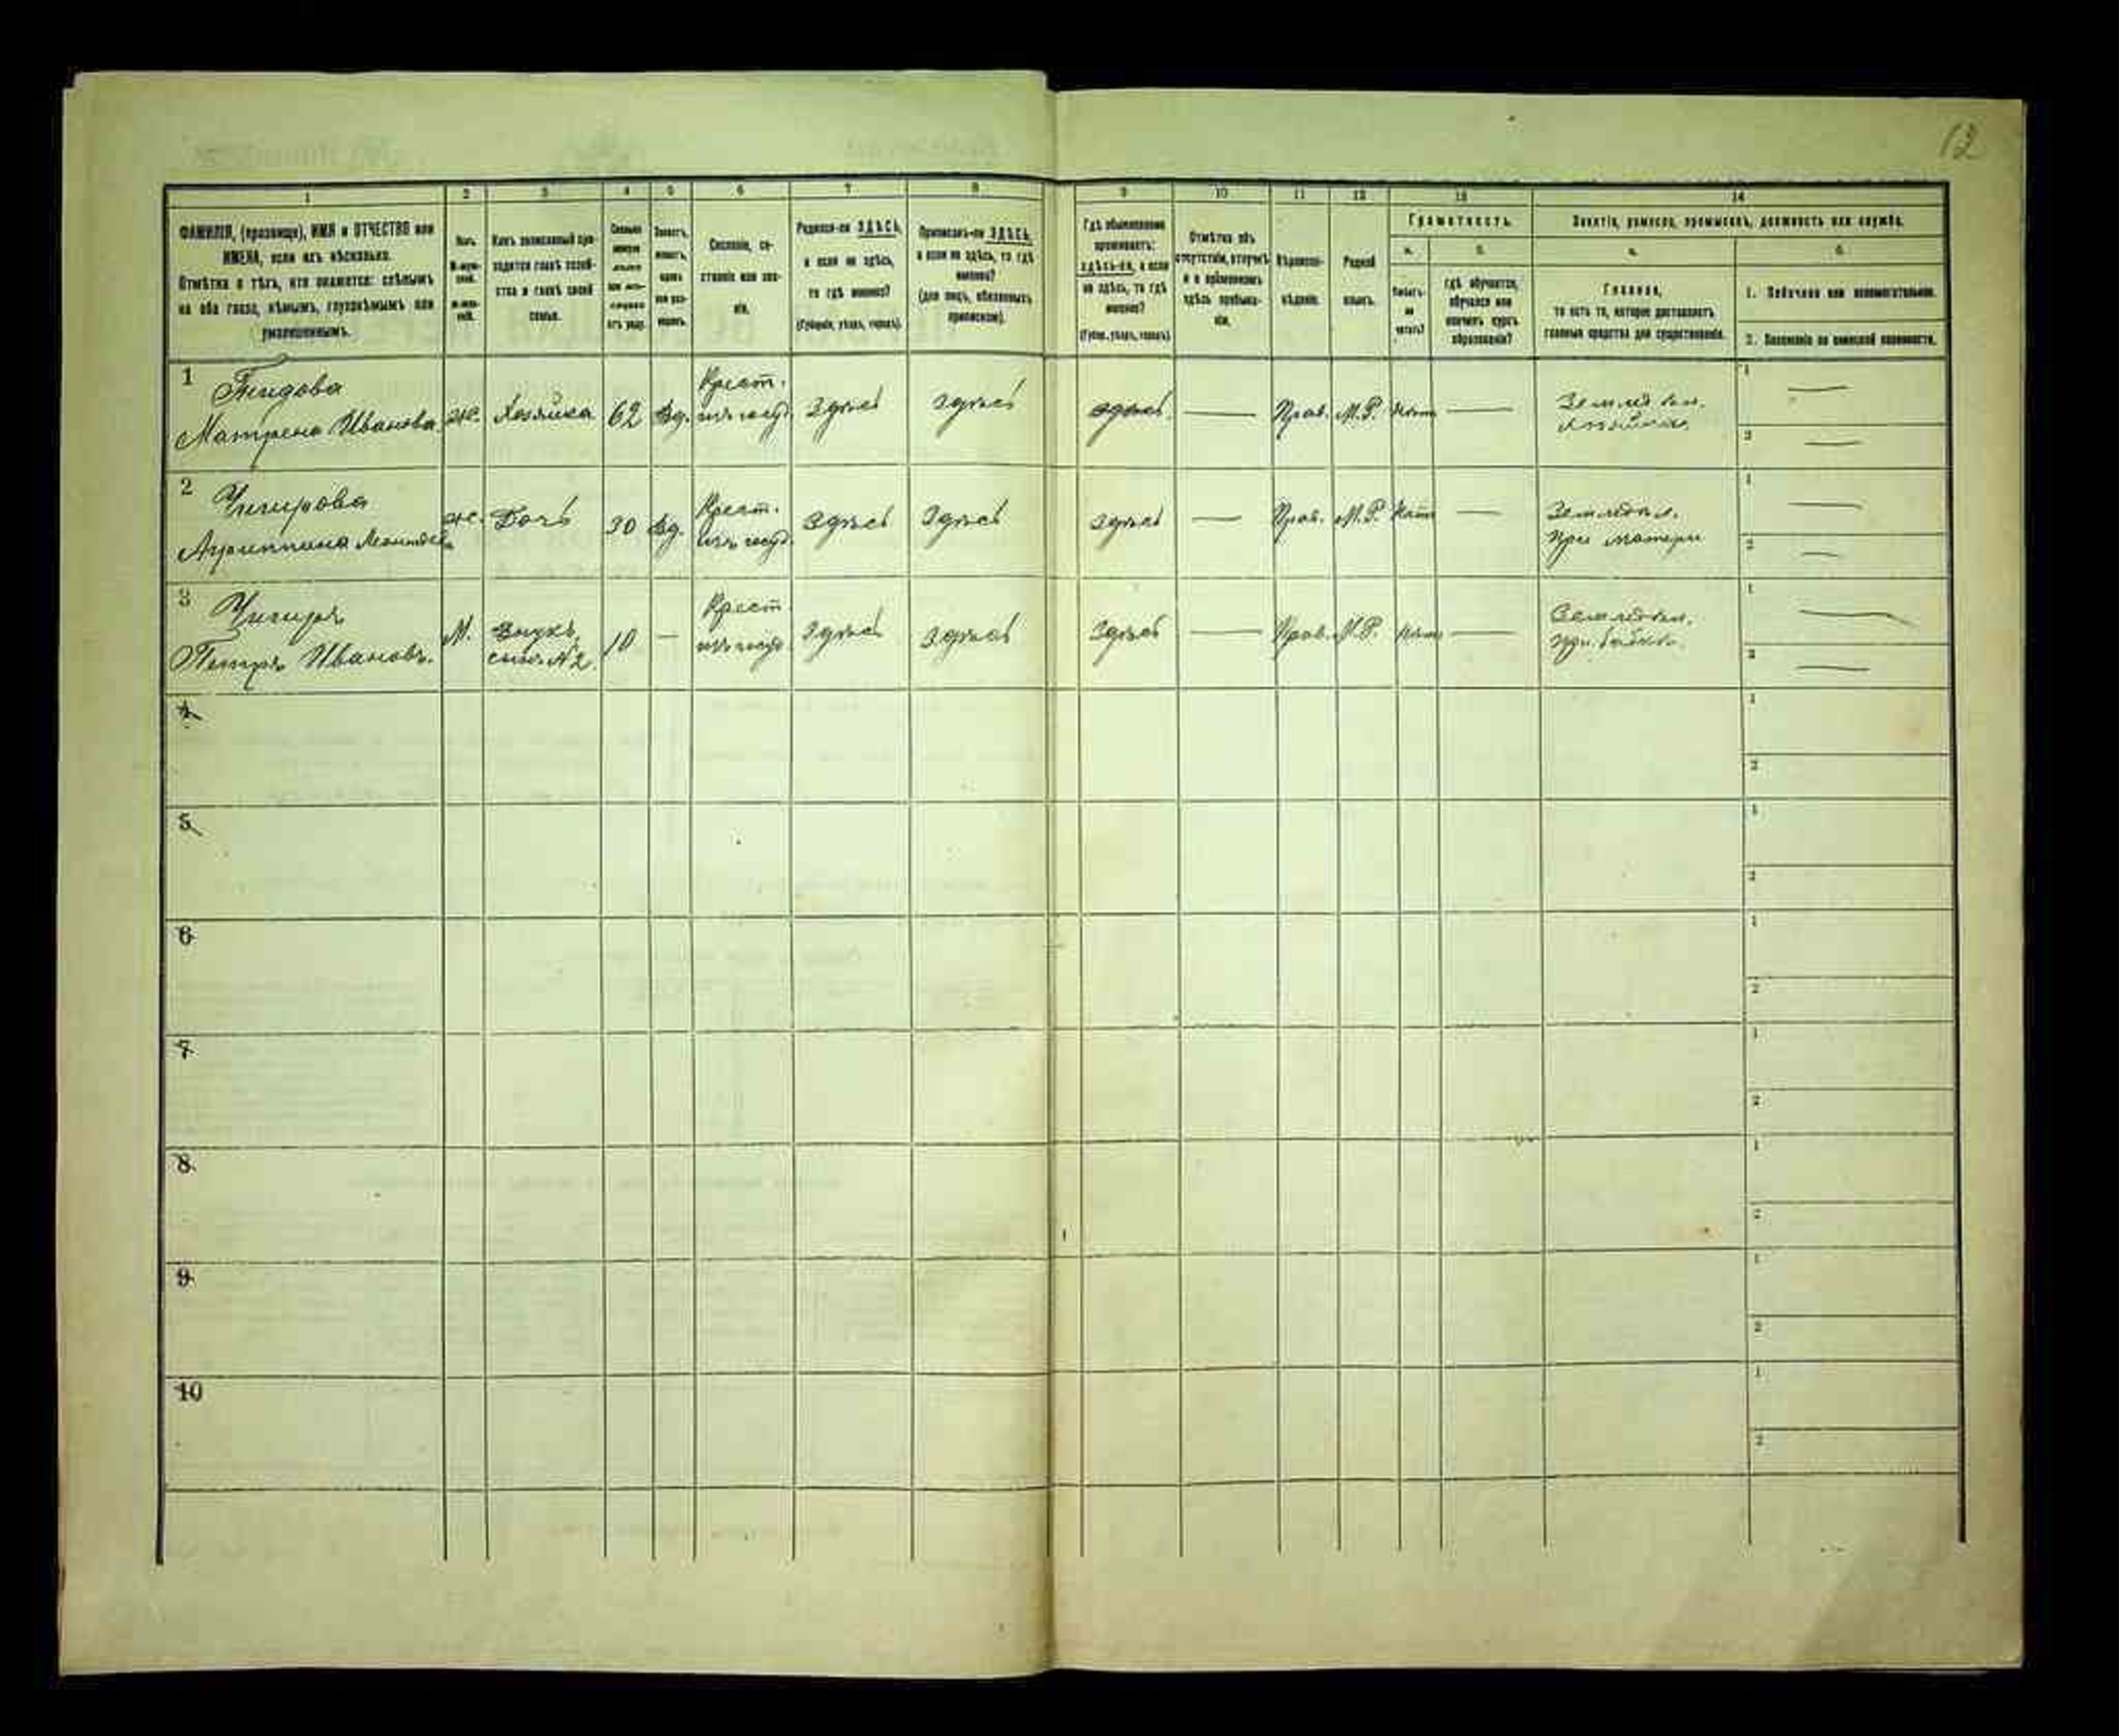 12
1 2 3 4 5 6 7 8 9 10 11 12 13 14
ФАМИЛІЯ, (прозвище), ИМЯ и ОТЧЕСТВО или
ИМЕНА, если ихъ нѣсколько.
Отмѣтка о тѣхъ, кто окажется: слѣпымъ
на оба глаза, нѣмымъ, глухонѣмымъ или
умалишеннымъ.
Полъ.
Какъ записанный при-
ходится главѣ хозяй-
ства и главѣ своей
семьи.
Сословіе, со-
стояніе или зва-
ніе.
Родился-ли ЗДѢСЬ,
а если не здѣсь,
то гдѣ именно?
(Губернія, уѣздъ, городъ).
Приписанъ-ли ЗДѢСЬ,
а если не здѣсь, то гдѣ
именно?
(для лицъ, обязанныхъ
припискою).
Гдѣ обыкновенно
проживаетъ:
здѣсь-ли, а если
не здѣсь, то гдѣ
именно?
(Губерн., уѣздъ, городъ).
Отмѣтка объ
отсутствіи, отлучкѣ
и о временномъ
здѣсь пребыва-
ніи.
Вѣроиспо-
вѣданіе.
Родной
языкъ.
Грамотность.
а. б.
Умѣетъ-
ли
читать?
гдѣ обучается,
обучался или
кончилъ курсъ
образованія?
Занятіе, ремесло, промыселъ, должность или служба.
а. б.
Главное,
то есть то, которое доставляетъ
главныя средства для существованія.
1. Побочное или вспомогательное.
2. Положеніе по воинской повинности.
1 Матрена Иванова ж. Хозяйка 62 Вд. Крест. изъ госуд. здѣсь здѣсь здѣсь — Прав. М.Р. нѣтъ — Земледѣл. хозяйка 1 — 2 —
2 Чигирова
Агриппина ж. Дочь 30 Вд. Крест. изъ госуд. здѣсь здѣсь здѣсь — Прав. М.Р. нѣтъ — Земледѣл. при матери 1 — 2 —
3 Чигирь
Петръ Ивановъ. М. Внукъ, сынъ №2. 10 — Крест. изъ госуд. здѣсь здѣсь здѣсь — Прав. М.Р. нѣтъ — Земледѣл. при бабкѣ. 1 — 2 —
4 1
2
5 1
2
6 1
2
7 1
2
8 1
2
9 1
2
10 1
2